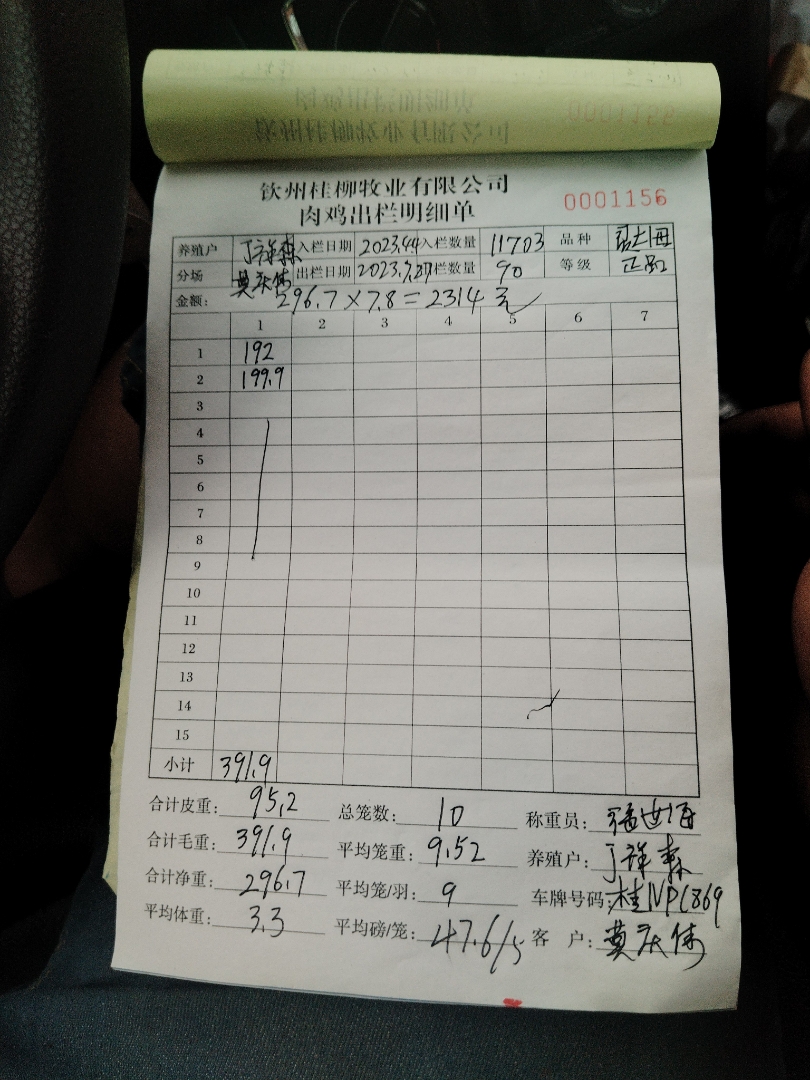 钦州桂柳牧业有限公司
肉鸡出栏明细单
0001156
养殖户 丁祥森 入栏日期 2023.4.4 入栏数量 11703 品种
分场 莫庆伟 出栏日期 2023.7.27 出栏数量 90 等级 正品
金额: 296.7×7.8=2314元
1 2 3 4 5 6 7
1 192
2 199.9
3
4
5
6
7
8
9
10
11
12
13
14
15
小计 391.9
合计皮重: 95.2 总笼数: 10 称重员:
合计毛重: 391.9 平均笼重: 9.52 养殖户: 丁祥森
合计净重: 296.7 平均笼/羽: 9 车牌号码: 桂NPC869
平均体重: 3.3 平均磅/笼: 47.6/5 客 户: 莫庆伟